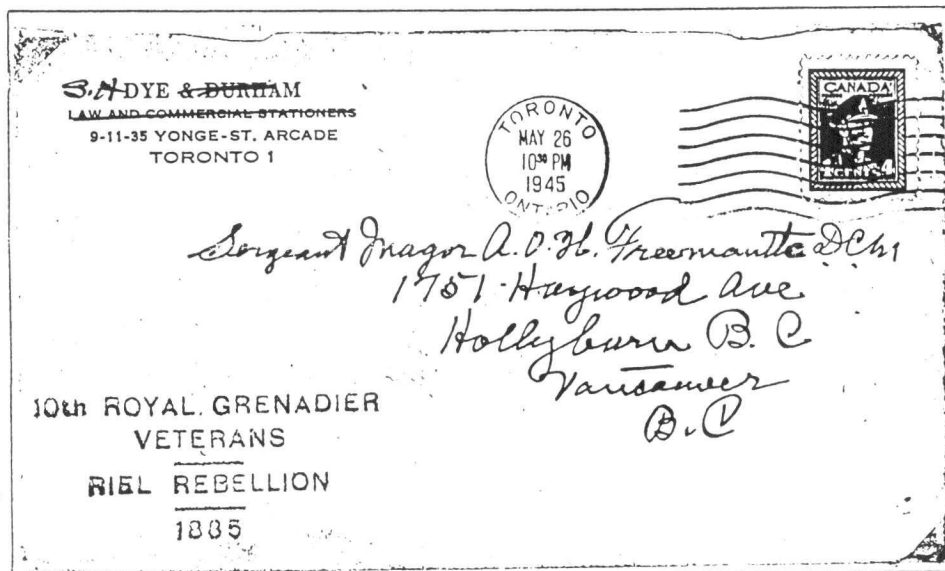 S.H DYE & DURHAM
LAW AND COMMERCIAL STATIONERS
9-11-35 YONGE-ST. ARCADE
TORONTO 1
TORONTO
MAY 26
10³⁰ PM
1945
ONTARIO
CANADA
4 CENTS 4
Sergeant Magor A.O.H. Freemantle DCM
1751 Haywood Ave
Hollyburn B.C
Vancouver
B.C
10th ROYAL GRENADIER
VETERANS
RIEL REBELLION
1885